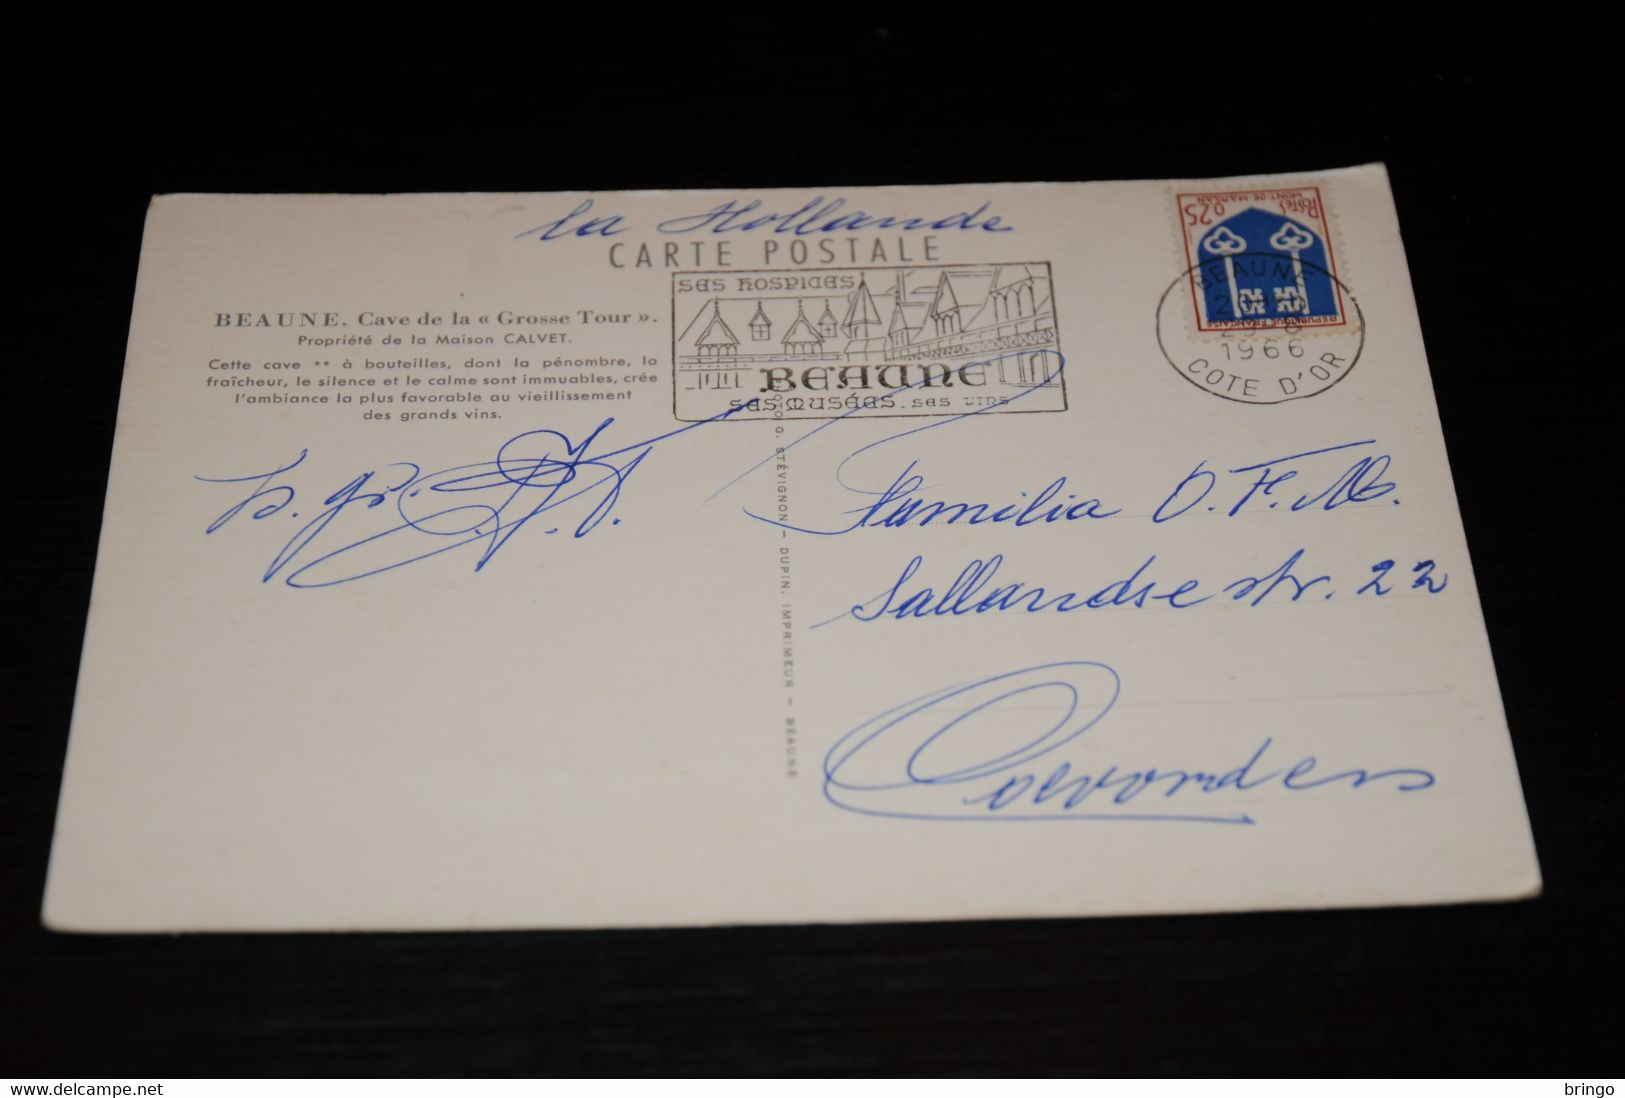 la Hollande
CARTE POSTALE
BEAUNE. Cave de la « Grosse Tour ».
Propriété de la Maison CALVET.
Cette cave ** à bouteilles, dont la pénombre, la
fraîcheur, le silence et le calme sont immuables, crée
l'ambiance la plus favorable au vieillissement
des grands vins.
SES HOSPICES
BEAUNE
SES MUSÉES. SES VINS
POSTES 0,25
MONT-DE-MARSAN
RÉPUBLIQUE FRANÇAISE
BEAUNE
1966
COTE D'OR
h. gr.
G. STÉVIGNON - DUPIN, IMPRIMEUR - BEAUNE
Familia O. F. M.
Sallandsestr. 22
Coevorden
delcampe.net
bringo